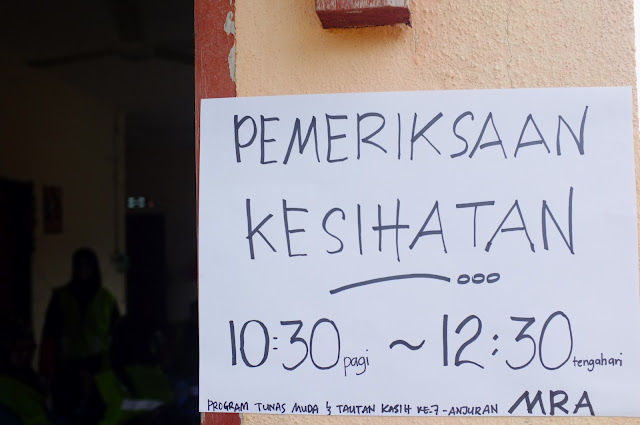 PEMERIKSAAN
KESIHATAN
10:30 pagi ~ 12:30 tengahari
PROGRAM TUNAS MUDA & TAUTAN KASIH KE-7 - ANJURAN MRA